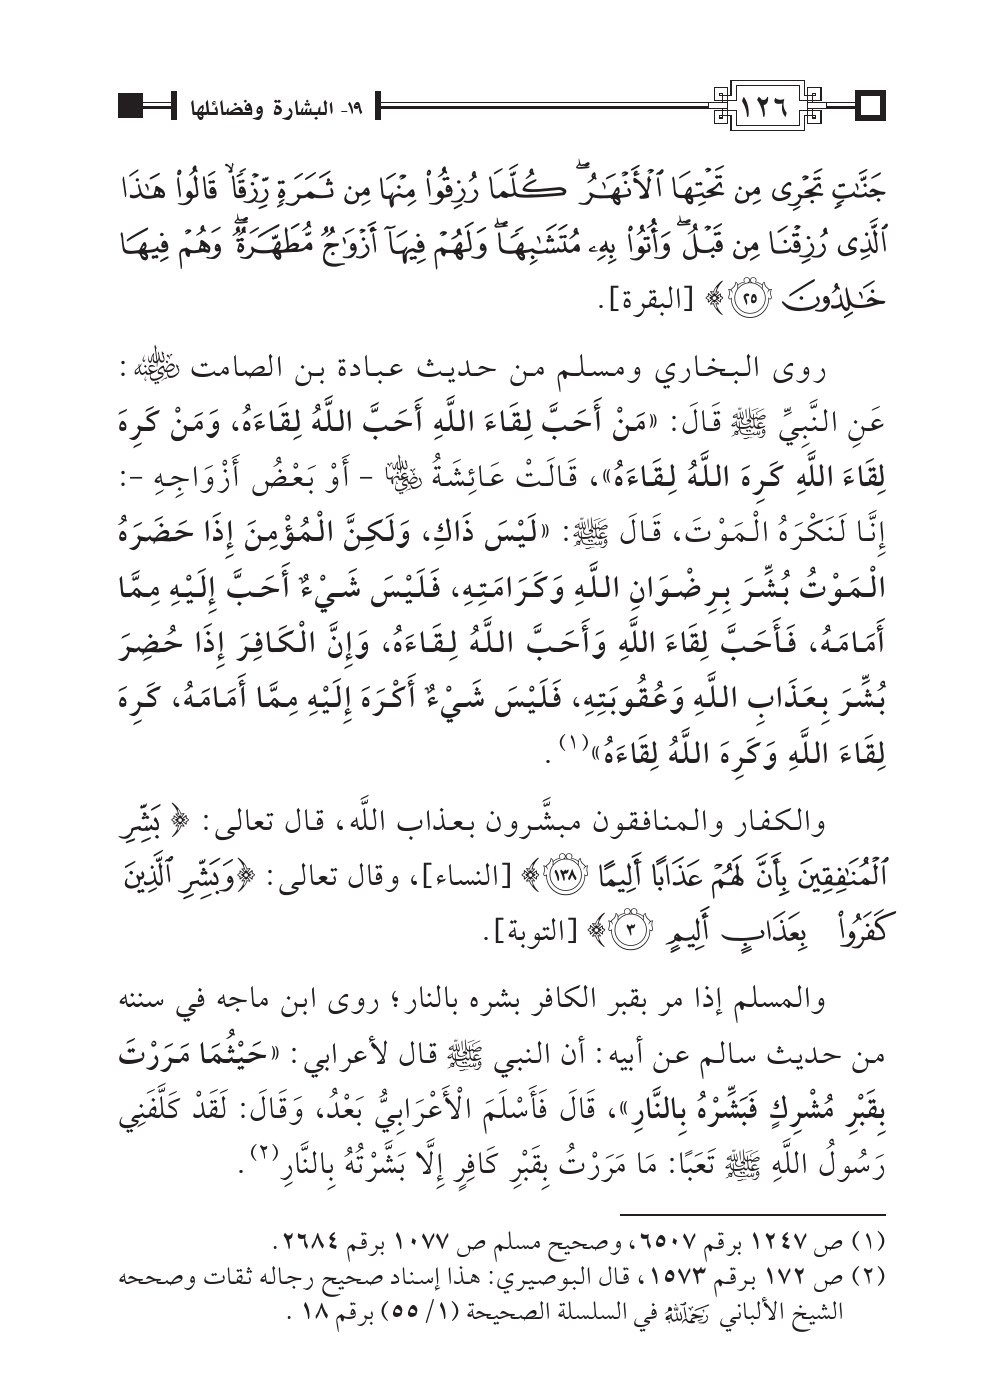 ١٢٦
١٩- البشارة وفضائلها
جَنَّٰتٖ تَجۡرِي مِن تَحۡتِهَا ٱلۡأَنۡهَٰرُۖ كُلَّمَا رُزِقُواْ مِنۡهَا مِن ثَمَرَةٖ رِّزۡقٗا قَالُواْ هَٰذَا
ٱلَّذِي رُزِقۡنَا مِن قَبۡلُۖ وَأُتُواْ بِهِۦ مُتَشَٰبِهٗاۖ وَلَهُمۡ فِيهَآ أَزۡوَٰجٞ مُّطَهَّرَةٞۖ وَهُمۡ فِيهَا
خَٰلِدُونَ ۝٢٥﴾ [البقرة].
روى البخاري ومسلم من حديث عبادة بن الصامت رضي الله عنه:
عَنِ النَّبِيِّ ﷺ قَالَ: «مَنْ أَحَبَّ لِقَاءَ اللَّهِ أَحَبَّ اللَّهُ لِقَاءَهُ، وَمَنْ كَرِهَ
لِقَاءَ اللَّهِ كَرِهَ اللَّهُ لِقَاءَهُ»، قَالَتْ عَائِشَةُ رضي الله عنها - أَوْ بَعْضُ أَزْوَاجِهِ -:
إِنَّا لَنَكْرَهُ الْمَوْتَ، قَالَ ﷺ: «لَيْسَ ذَاكِ، وَلَكِنَّ الْمُؤْمِنَ إِذَا حَضَرَهُ
الْمَوْتُ بُشِّرَ بِرِضْوَانِ اللَّهِ وَكَرَامَتِهِ، فَلَيْسَ شَيْءٌ أَحَبَّ إِلَيْهِ مِمَّا
أَمَامَهُ، فَأَحَبَّ لِقَاءَ اللَّهِ وَأَحَبَّ اللَّهُ لِقَاءَهُ، وَإِنَّ الْكَافِرَ إِذَا حُضِرَ
بُشِّرَ بِعَذَابِ اللَّهِ وَعُقُوبَتِهِ، فَلَيْسَ شَيْءٌ أَكْرَهَ إِلَيْهِ مِمَّا أَمَامَهُ، كَرِهَ
لِقَاءَ اللَّهِ وَكَرِهَ اللَّهُ لِقَاءَهُ»(١).
والكفار والمنافقون مبشَّرون بعذاب اللَّه، قال تعالى: ﴿بَشِّرِ
ٱلۡمُنَٰفِقِينَ بِأَنَّ لَهُمۡ عَذَابًا أَلِيمًا ۝١٣٨﴾ [النساء]، وقال تعالى: ﴿وَبَشِّرِ ٱلَّذِينَ
كَفَرُواْ بِعَذَابٍ أَلِيمٍ ۝٣﴾ [التوبة].
والمسلم إذا مر بقبر الكافر بشره بالنار؛ روى ابن ماجه في سننه
من حديث سالم عن أبيه: أن النبي ﷺ قال لأعرابي: «حَيْثُمَا مَرَرْتَ
بِقَبْرِ مُشْرِكٍ فَبَشِّرْهُ بِالنَّارِ»، قَالَ فَأَسْلَمَ الْأَعْرَابِيُّ بَعْدُ، وَقَالَ: لَقَدْ كَلَّفَنِي
رَسُولُ اللَّهِ ﷺ تَعَبًا: مَا مَرَرْتُ بِقَبْرِ كَافِرٍ إِلَّا بَشَّرْتُهُ بِالنَّارِ(٢).
(١) ص ١٢٤٧ برقم ٦٥٠٧، وصحيح مسلم ص ١٠٧٧ برقم ٢٦٨٤.
(٢) ص ١٧٢ برقم ١٥٧٣، قال البوصيري: هذا إسناد صحيح رجاله ثقات وصححه
الشيخ الألباني رحمه الله في السلسلة الصحيحة (١/ ٥٥) برقم ١٨.